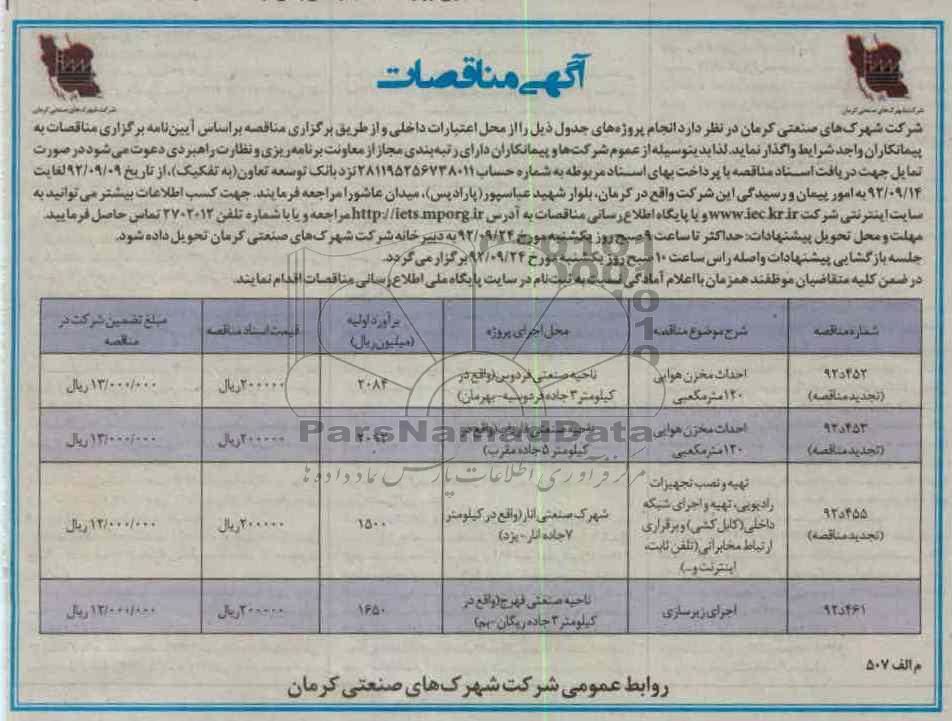 آگهی مناقصات
شرکت شهرک‌های صنعتی کرمان
شرکت شهرک‌های صنعتی کرمان
شرکت شهرک‌های صنعتی کرمان در نظر دارد انجام پروژه‌های جدول ذیل را از محل اعتبارات داخلی و از طریق برگزاری مناقصه براساس آیین‌نامه برگزاری مناقصات به
پیمانکاران واجد شرایط واگذار نماید. لذا بدینوسیله از عموم شرکت‌ها و پیمانکاران دارای رتبه‌بندی مجاز از معاونت برنامه‌ریزی و نظارت راهبردی دعوت می‌شود در صورت
تمایل جهت دریافت اسناد مناقصه با پرداخت بهای اسناد مربوطه به شماره حساب ۲۸۱۱۹۵۲۵۶۷۳۸۰۱۱ نزد بانک توسعه تعاون (به تفکیک)، از تاریخ ۹۲/۰۹/۰۹ لغایت
۹۲/۰۹/۱۴ به امور پیمان و رسیدگی این شرکت واقع در کرمان، بلوار شهید عباسپور (پارادیس)، میدان عاشورا مراجعه فرمایند. جهت کسب اطلاعات بیشتر می توانید به
سایت اینترنتی شرکت www.iec.kr.ir و یا پایگاه اطلاع رسانی مناقصات به آدرس http://iets.mporg.ir مراجعه و یا با شماره تلفن ۲۷۰۲۰۱۲ تماس حاصل فرمایید.
مهلت و محل تحویل پیشنهادات: حداکثر تا ساعت ۹ صبح روز یکشنبه مورخ ۹۲/۰۹/۲۴ به دبیرخانه شرکت شهرک‌های صنعتی کرمان تحویل داده شود.
جلسه بازگشایی پیشنهادات واصله راس ساعت ۱۰ صبح روز یکشنبه مورخ ۹۲/۰۹/۲۴ برگزار می‌گردد.
در ضمن کلیه متقاضیان موظفند همزمان با اعلام آمادگی نسبت به ثبت‌نام در سایت پایگاه ملی اطلاع رسانی مناقصات اقدام نمایند.
شماره مناقصه شرح موضوع مناقصه محل اجرای پروژه برآورد اولیه (میلیون ریال) قیمت اسناد مناقصه مبلغ تضمین شرکت در مناقصه
۴۵۲د۹۲ (تجدید مناقصه) احداث مخزن هوایی ۱۲۰ مترمکعبی ناحیه صنعتی فردوس (واقع در کیلومتر ۳ جاده فردوسیه-بهرمان) ۲۰۸۴ ۲۰۰۰۰۰ ریال ۱۳/۰۰۰/۰۰۰ ریال
۴۵۳د۹۲ (تجدید مناقصه) احداث مخزن هوایی ۱۲۰ مترمکعبی ناحیه صنعتی (واقع در کیلومتر ۵ جاده مقرب) ۲۰۰۰۰۰ ریال ۱۳/۰۰۰/۰۰۰ ریال
۴۵۵د۹۲ (تجدید مناقصه) تهیه و نصب تجهیزات رادیویی، تهیه و اجرای شبکه داخلی (کابل کشی) و برقراری ارتباط مخابراتی (تلفن ثابت، اینترنت و...) شهرک صنعتی انار (واقع در کیلومتر ۷ جاده انار - یزد) ۱۵۰۰ ۲۰۰۰۰۰ ریال ۱۲/۰۰۰/۰۰۰ ریال
۴۶۱د۹۲ اجرای زیرسازی ناحیه صنعتی فهرج (واقع در کیلومتر ۳ جاده ریگان-بم) ۱۶۵۰ ۲۰۰۰۰۰ ریال ۱۲/۰۰۰/۰۰۰ ریال
ParsNamadData
مرکز فرآوری اطلاعات پارس نماد داده ها
م الف ۵۰۷
روابط عمومی شرکت شهرک‌های صنعتی کرمان